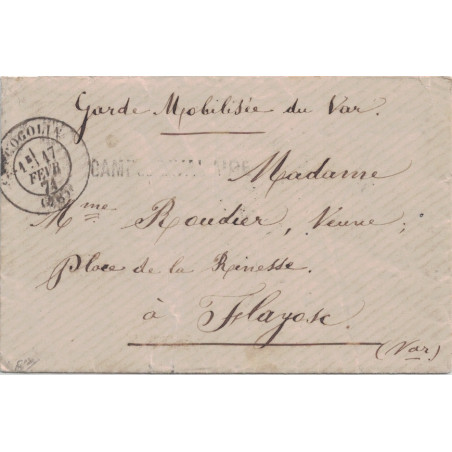 Garde Mobilisée du Var.
COGOLIN
17
FEVR
71
CAMP
Madame
Mme Roudier, Veuve;
Place de la Rinesse.
à Flayosc.
(Var)